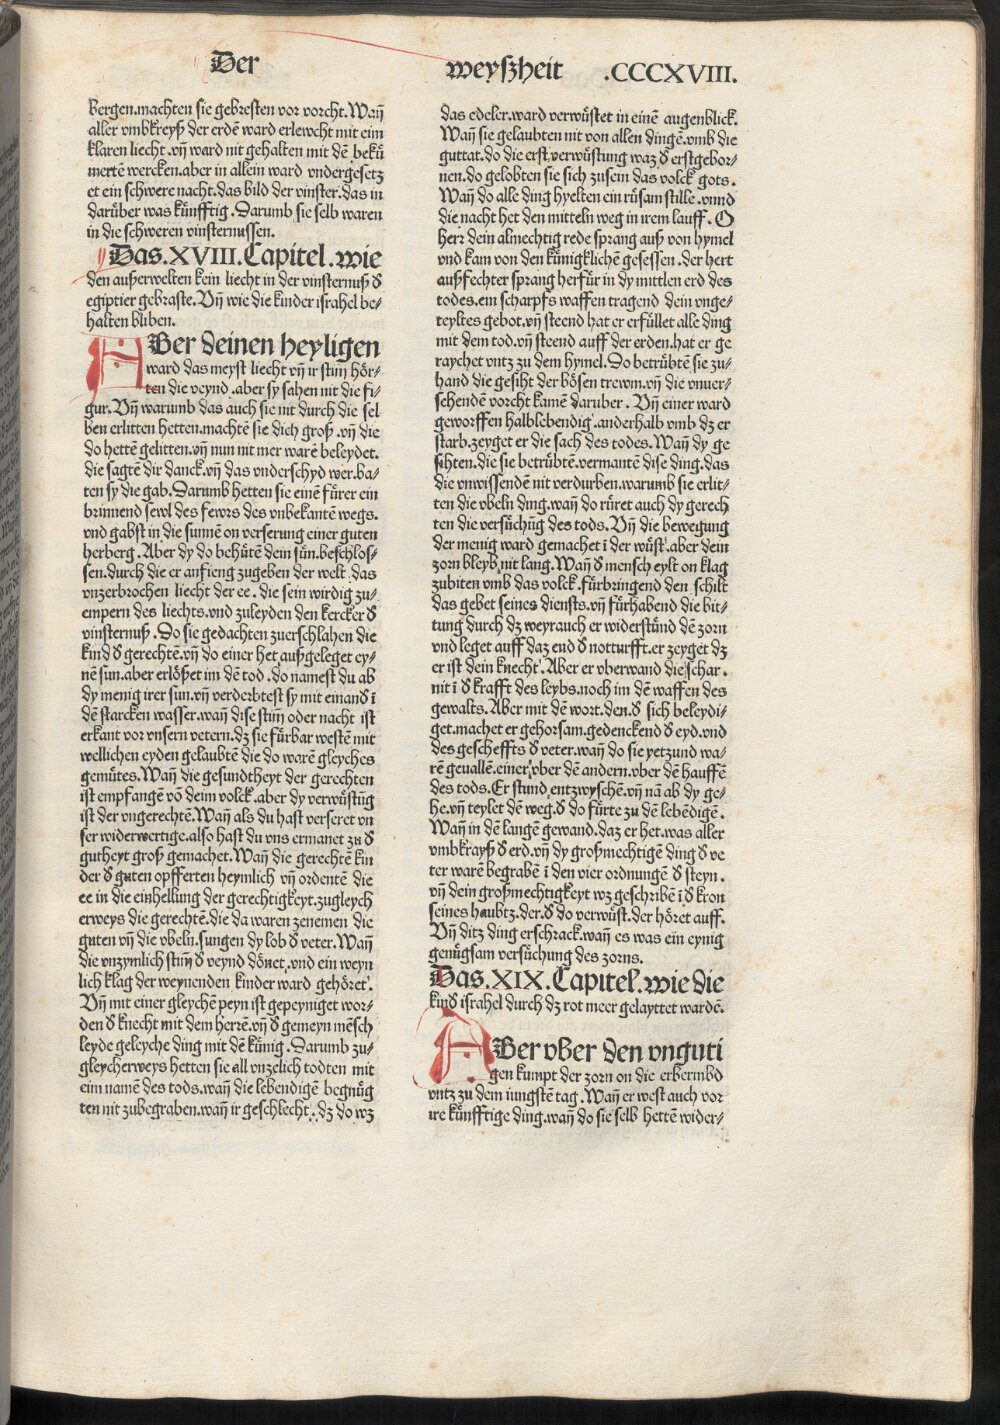 Der weyßheit .CCCXVIII.
bergen.machten sie gebresten vor vorcht.Wañ
aller vmbkreyß der erdē ward erlewcht mit eim
klaren liecht.vñ ward nit gehalten mit dē bekü
mertē wercken.aber in allein ward vndergesetz
et ein schwere nacht.das bild der vinster.das in
darüber was künfftig.Darumb sie selb waren
in die schweren vinsternussen.
Das.XVIII.Capitel.wie
den außerwelten kein liecht in der vinsternuß d̕
egiptier gebraste.Vñ wie die kinder israhel be⸗
halten bliben.
ABer deinen heyligen
ward das meyst liecht vñ ir stim̄ hör⸗
ten die veynd.aber sy sahen nit die fi⸗
gur.Vñ warumb das auch sie nit durch die sel
ben erlitten hetten.machtē sie dich groß.vñ die
do hettē gelitten.vñ nun nit mer warē beleydet.
die sagtē dir danck.vñ das vnderschyd wer.ba⸗
ten sy die gab.Darumb hetten sie einē fürer ein
brinnend sewl des fewrs des vnbekantē wegs.
vnd gabst in die sunnē on verserung einer guten
herberg.Aber dy do behütē dein sün.beschlos⸗
sen.durch die er anfieng zugeben der welt das
vnzerbrochen liecht der ee.die sein wirdig zu⸗
empern des liechts.vnd zuleyden den kercker d̕
vinsternuß.So sie gedachten zuerschlahen die
kind d̕ gerechtē.vñ do einer het außgeleget ey⸗
nē sun.aber erlößet im dē tod.do namest du ab
dy menig irer sün.vñ verderbtest sy mit einand̕ ī
dē starcken wasser.wañ dise stim̄ oder nacht ist
erkant vor vnsern vetern.dz sie fürbar westē mit
wellichen eyden gelaubtē die do warē gleyches
gemütes.Wañ die gesundtheyt der gerechten
ist empfangē võ deim volck.aber dy verwüstūg
ist der vngerechtē.Wañ als du hast verseret vn
ser widerwertige.also hast du vns ermanet zu d̕
gutheyt groß gemachet.Wañ die gerechtē kin
der d̕ guten opfferten heymlich vñ ordentē die
ee in die einhellung der gerechtigkeyt.zugleych
erweys die gerechtē.die da waren zenemen die
guten vñ die vbeln.sungen dy lob d̕ veter.Wañ
die vnzymlich stim̄ d̕ veynd dönet.vnd ein weyn
lich klag der weynenden kinder ward gehöret.
Vñ mit einer gleychē peyn ist gepeyniget wor⸗
den d̕ knecht mit dem herrē.vñ d̕ gemeyn mēsch
leyde geleyche ding mit dē künig.Darumb zu⸗
gleycherweys hetten sie all vnzelich todten mit
eim namē des tods.wañ die lebendigē begnüg
ten nit zubegraben.wañ ir geschlecht.dz do wz
das edeler.ward verwüstet in einē augenblick.
Wañ sie gelaubten nit von allen dingē.vmb die
guttat.do die erst verwüstung waz d̕ erstgebor⸗
nen.do gelobten sie sich zusein das volck gots.
Wañ do alle ding hyelten ein rüsam stille.vnnd
die nacht het den mitteln weg in irem lauff.O
herr dein almechtig rede sprang auß von hymel
vnd kam von den künigklichē gesessen.der hert
außfechter sprang herfür in dy mittlen erd des
todes.ein scharpfs waffen tragend dein vnge⸗
teyltes gebot.vñ steend hat er erfüllet alle ding
mit dem tod.vñ steend auff der erden.hat er ge
raychet vntz zu dem hymel.Do betrübtē sie zu⸗
hand die gesiht der bösen trewm.vñ die vnuer⸗
sehendē vorcht kamē daruber.Vñ einer ward
geworffen halblebendig.anderhalb vmb dz er
starb.zeyget er die sach des todes.Wañ dy ge
sihten.die sie betrübtē.vermantē dise ding.das
die vnwissendē nit verdurben.warumb sie erlit⸗
ten die vbeln ding.wañ do rüret auch dy gerech
ten die versüchūg des tods.Vñ die bewegung
der menig ward gemachet ī der wüst.aber dein
zorn bleyb nit lang.Wañ d̕ mensch eylt on klag
zubiten vmb das volck.fürbringend den schilt
das gebet seines diensts.vñ fürhabend die bit⸗
tung durch dz weyrauch er widerstünd dē zorn
vnd leget auff daz end d̕ notturfft.er zeyget dz
er ist dein knecht.Aber er vberwand die schar.
nit ī d̕ krafft des leybs.noch im dē waffen des
gewalts.Aber mit dē wort.den.d̕ sich beleydi⸗
get.machet er gehorsam.gedenckend d̕ eyd.vnd
des gescheffts d̕ veter.wañ do sie yetzund wa⸗
rē geuallē.einer vber dē andern.vber dē hauffē
des tods.Er stund entzwyschē.vñ nā ab dy ge⸗
he.vñ teylet dē weg.d̕ do fürte zu dē lebēdigē.
Wañ in dē langē gewand.daz er het.was aller
vmbkrayß d̕ erd.vñ dy großmechtigē ding d̕ ve
ter warē begrabē ī den vier ordnungē d̕ steyn.
vñ dein großmechtigkeyt wz geschribē ī d̕ kron
seines haubtz.der.d̕ do verwüst.der höret auff.
Vñ ditz ding erschrack.wañ es was ein eynig
genügsam versüchung des zorns.
Das.XIX.Capitel.wie die
kind̕ israhel durch dz rot meer gelayttet wardē.
ABer vber den vnguti
gen kumpt der zorn on die erbermbd
vntz zu dem iungstē tag.Wañ er west auch vor
ire künfftige ding.wañ do sie selb hettē wider⸗